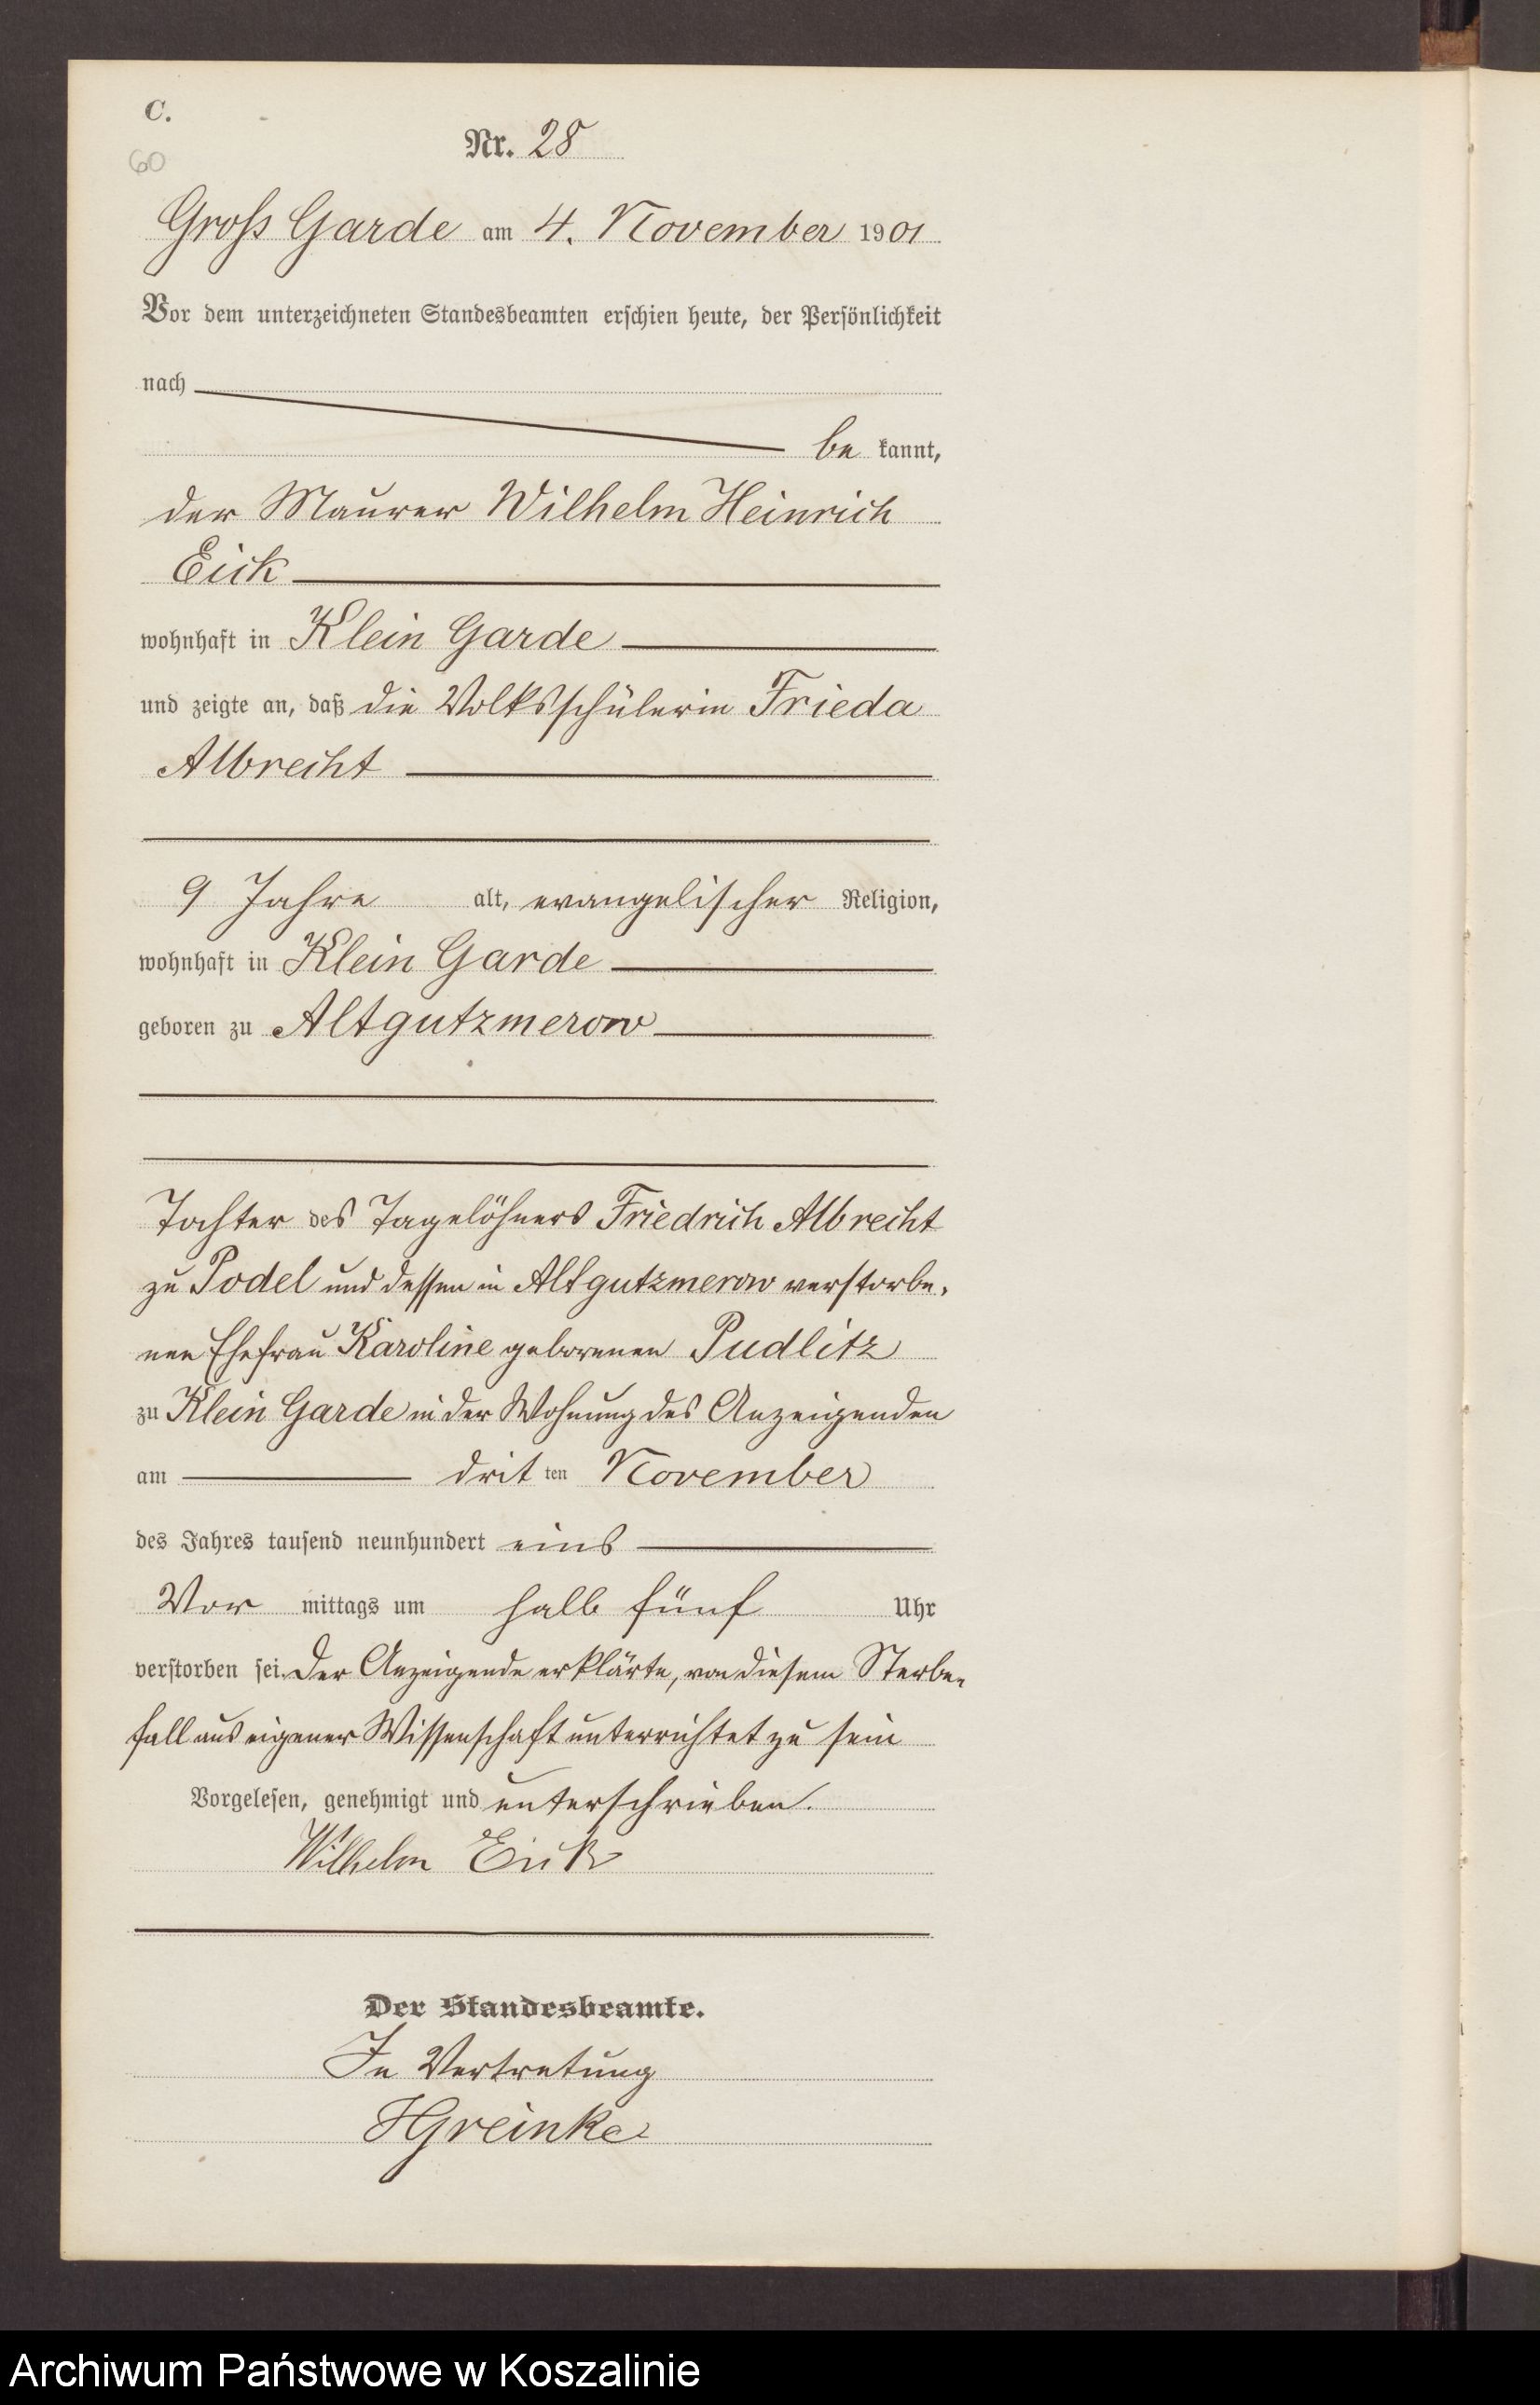 C.
60
Nr. 28
Gross Garde am 4. November 1901
Vor dem unterzeichneten Standesbeamten erschien heute, der Persönlichkeit
nach
be kannt,
der Maurer Wilhelm Heinrich
Eick
wohnhaft in Klein Garde
und zeigte an, daß die Volksschülerin Frieda
Albrecht
9 Jahre alt, evangelischer Religion,
wohnhaft in Klein Garde
geboren zu Altgutzmerow
Tochter des Tagelöhners Friedrich Albrecht
zu Podel und dessen in Altgutzmerow verstorbe-
nen Ehefrau Karoline geborenen Pudlitz
zu Klein Garde in der Wohnung des Anzeigenden
am drit ten November
des Jahres tausend neunhundert eins
Vor mittags um halb fünf Uhr
verstorben sei. Der Anzeigende erklärte, von diesem Sterbe-
fall aus eigener Wissenschaft unterrichtet zu sein
Vorgelesen, genehmigt und unterschrieben.
Wilhelm Eick
Der Standesbeamte.
In Vertretung
HGreinke
Archiwum Państwowe w Koszalinie